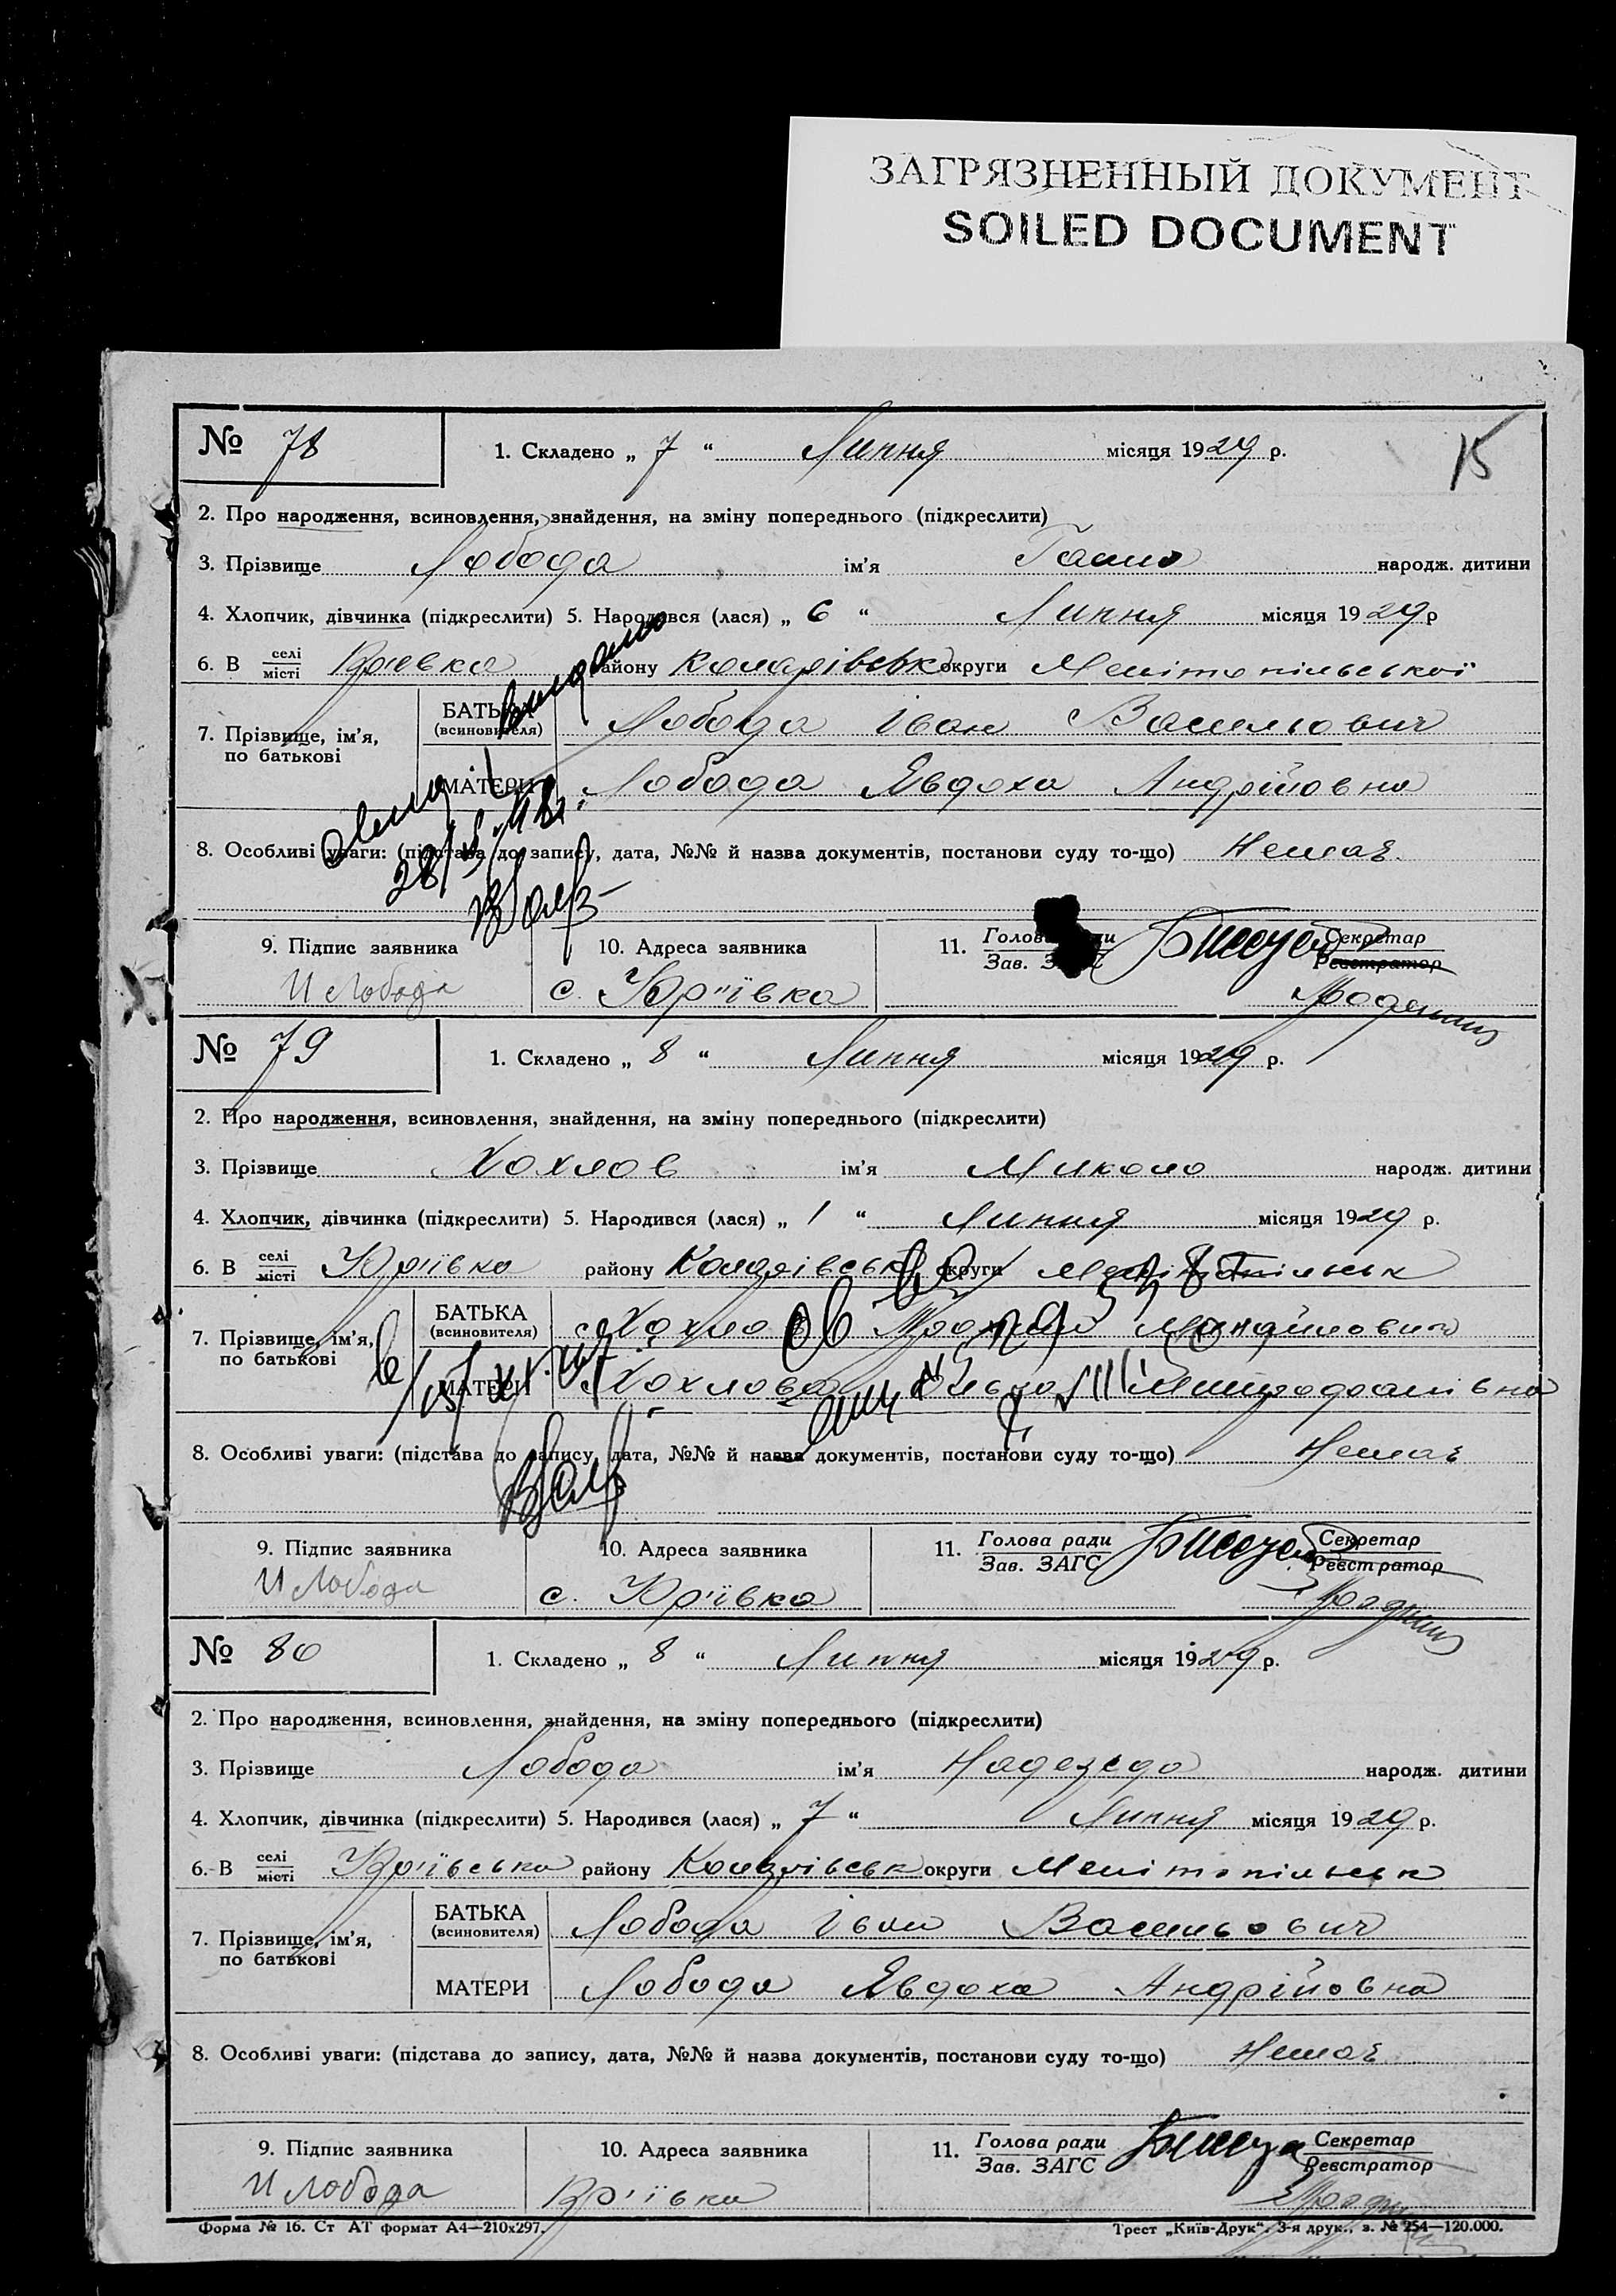 ЗАГРЯЗНЕННЫЙ ДОКУМЕНТ
SOILED DOCUMENT
15
№ 78
1. Складено „ 7 “ Липня місяця 1929 р.
2. Про народження, всиновлення, знайдення, на зміну попереднього (підкреслити)
3. Прізвище Лобода ім'я Ганна народж. дитини
4. Хлопчик, дівчинка (підкреслити) 5. Народився (лася) „ 6 “ Липня місяця 1929 р
6. В селі місті району округи Мелітопільської
7. Прізвище, ім'я, по батькові
БАТЬКА (всиновителя) Лобода Іван Васильович
МАТЕРИ Лобода Явдоха Андрійовна
8. Особливі уваги: (підстава до запису, дата, №№ й назва документів, постанови суду то-що) Немає
9. Підпис заявника И Лобода
10. Адреса заявника с. Юр'ївка
11. Голова ради Зав. ЗАГС Секретар Реєстратор
№ 79
1. Складено „ 8 “ Липня місяця 1929 р.
2. Про народження, всиновлення, знайдення, на зміну попереднього (підкреслити)
3. Прізвище Хохлов ім'я Микола народж. дитини
4. Хлопчик, дівчинка (підкреслити) 5. Народився (лася) „ 1 “ Липня місяця 1929 р.
6. В селі місті Юр'ївка району округи
7. Прізвище, ім'я, по батькові
БАТЬКА (всиновителя)
МАТЕРИ Хохлова
8. Особливі уваги: (підстава до запису, дата, №№ й назва документів, постанови суду то-що) Немає
9. Підпис заявника И Лобода
10. Адреса заявника с. Юр'ївка
11. Голова ради Зав. ЗАГС Секретар Реєстратор
№ 80
1. Складено „ 8 “ Липня місяця 1929 р.
2. Про народження, всиновлення, знайдення, на зміну попереднього (підкреслити)
3. Прізвище Лобода ім'я Надежда народж. дитини
4. Хлопчик, дівчинка (підкреслити) 5. Народився (лася) „ 7 “ Липня місяця 1929 р.
6. В селі місті району округи Мелітопільськ
7. Прізвище, ім'я, по батькові
БАТЬКА (всиновителя) Лобода Іван Васильович
МАТЕРИ Лобода Явдоха Андрійовна
8. Особливі уваги: (підстава до запису, дата, №№ й назва документів, постанови суду то-що) Немає
9. Підпис заявника И Лобода
10. Адреса заявника Юр'ївка
11. Голова ради Зав. ЗАГС Секретар Реєстратор
Форма № 16. Ст АТ формат А4—210х297.
Трест „Київ-Друк“. 3-я друк., з. № 254—120.000.